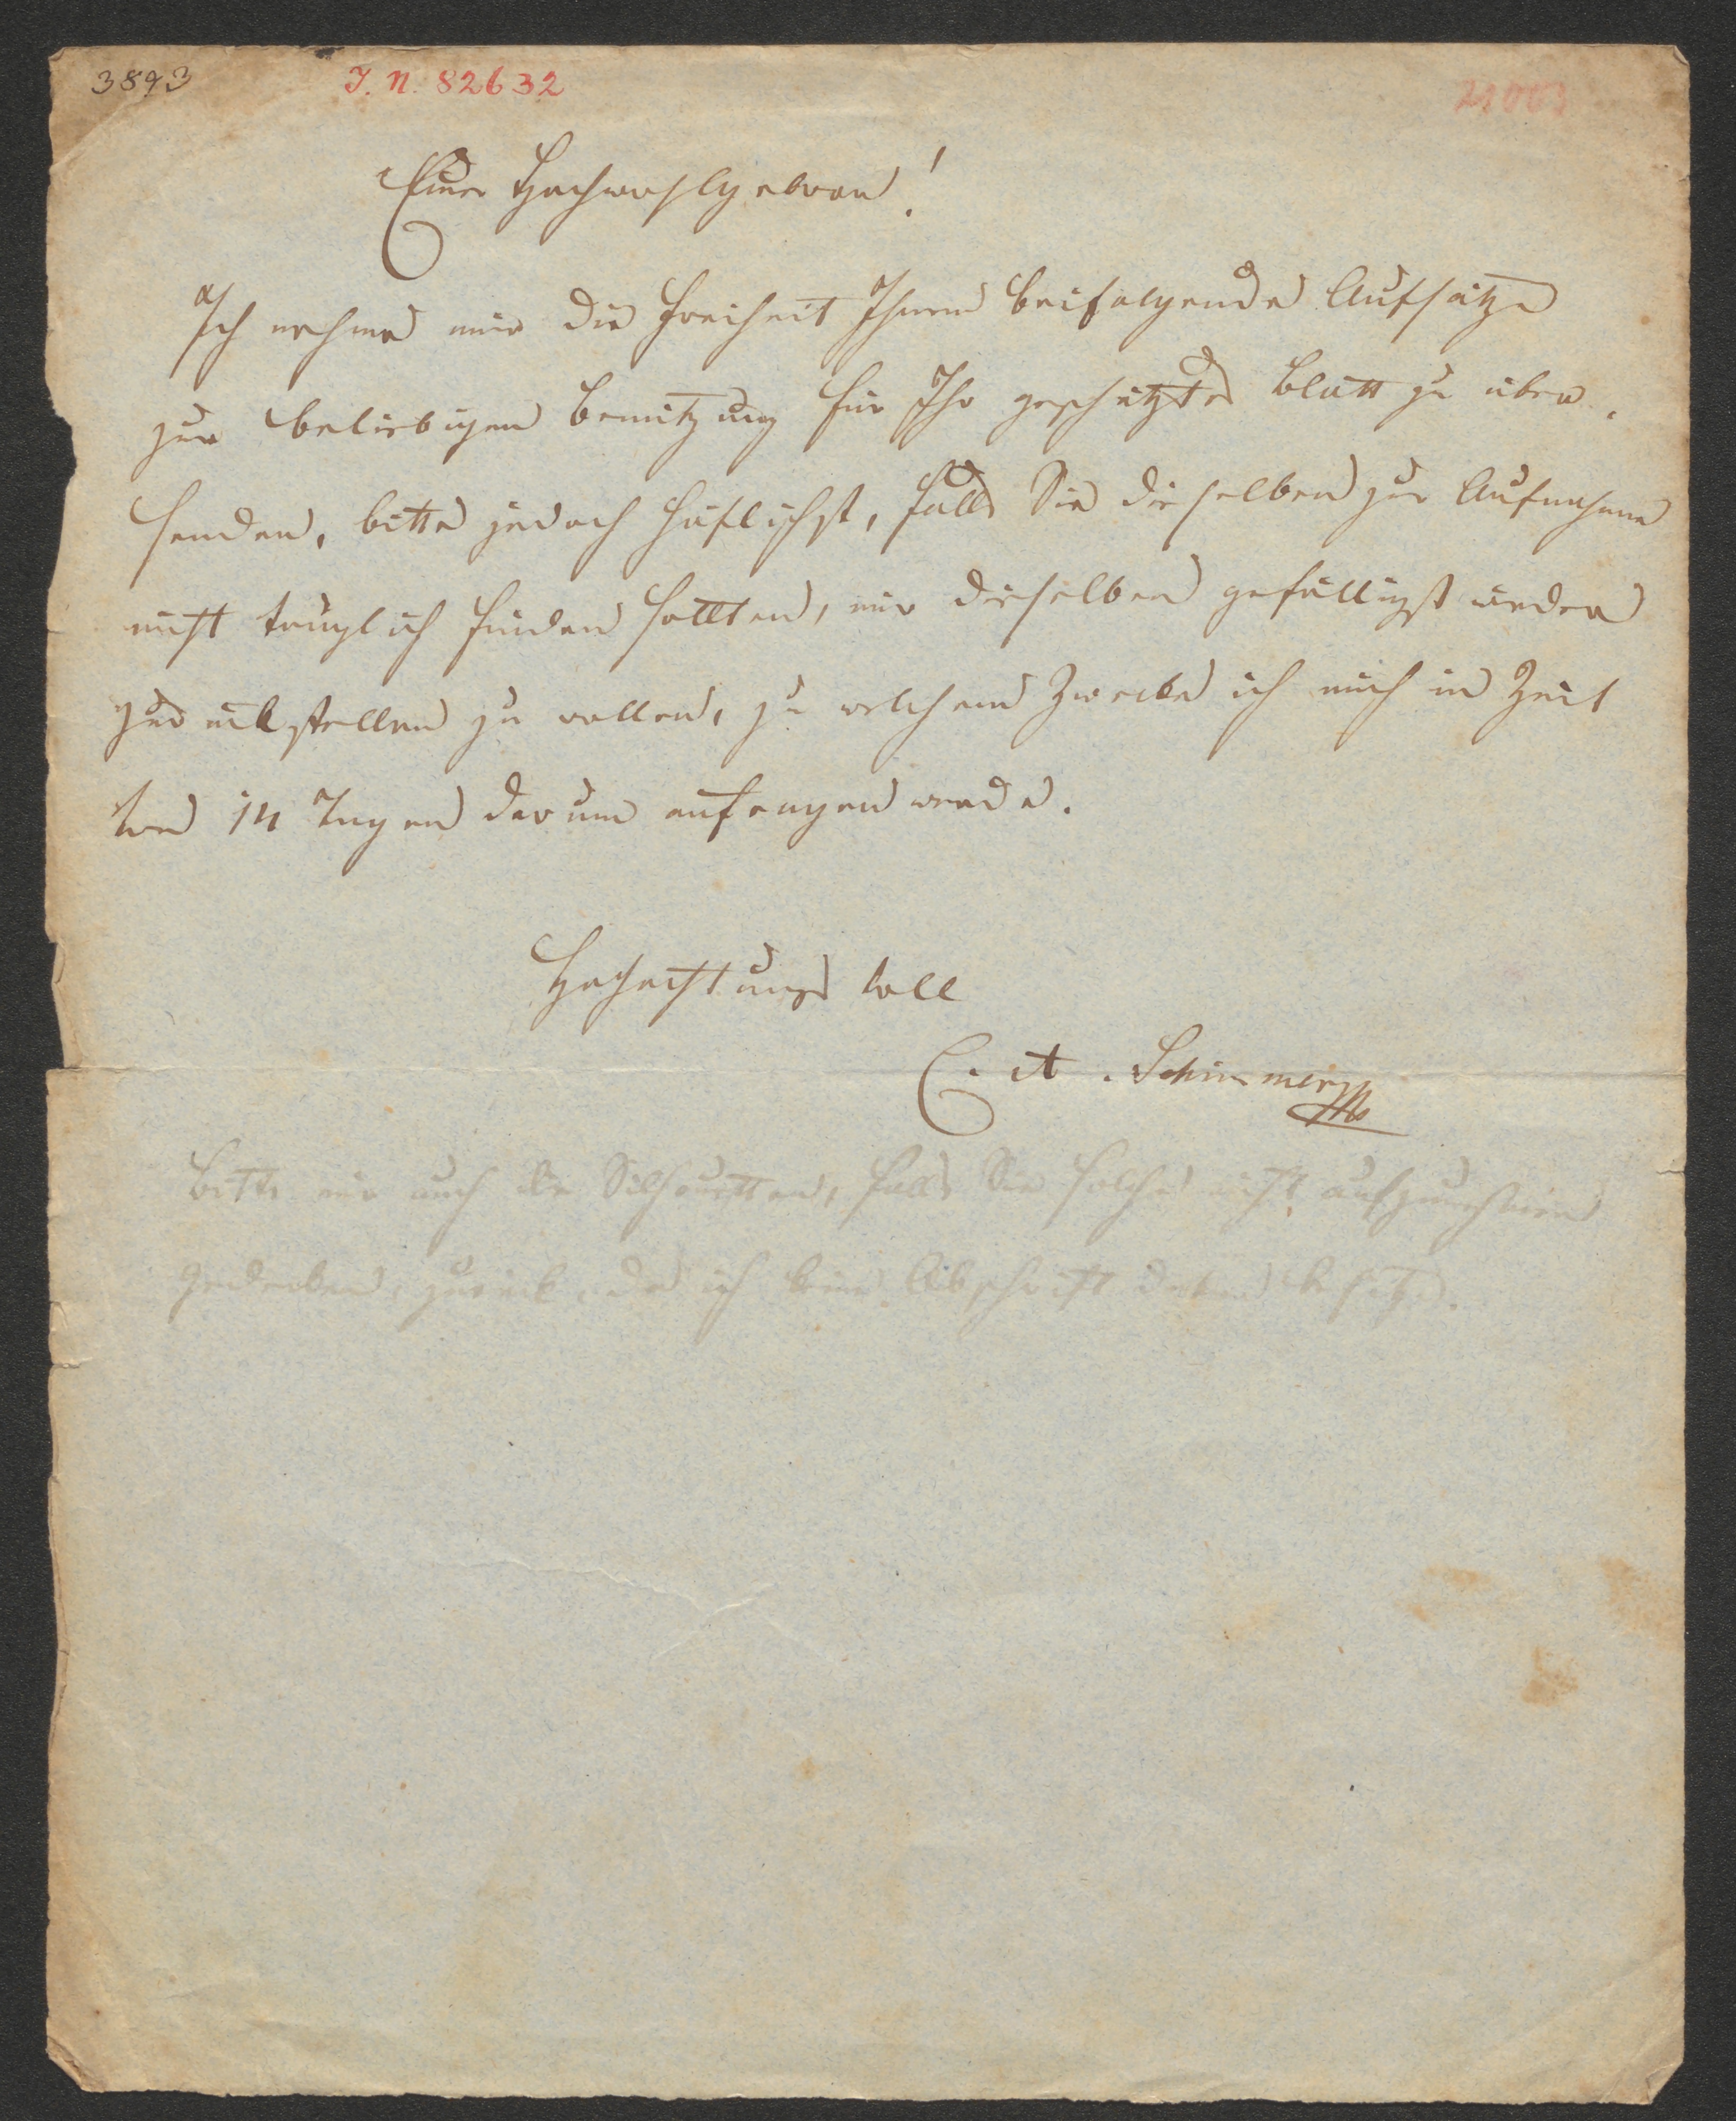 3893 I. N. 82632
Euer Hochwohlgeboren!
Ich nehme mir die Freiheit Ihnen beifolgende Aufsätze
zur beliebigen Benützung für Ihr geschätztes Blatt zu über-
senden, bitte jedoch höflichst, falls Sie dieselben zur Aufnahme
nicht tauglich finden sollten, mir dieselben gefälligst wieder
zurückstellen zu wollen, zu welchem Zwecke ich mich in Zeit
von 14 Tagen darum anfragen werde.
Hochachtungsvoll
C. A. Schimmer
Bitte mir auch die Silhouetten, falls Sie solche nicht aufzunehmen
gedenken, zurück, da ich keine Abschrift davon besitze.